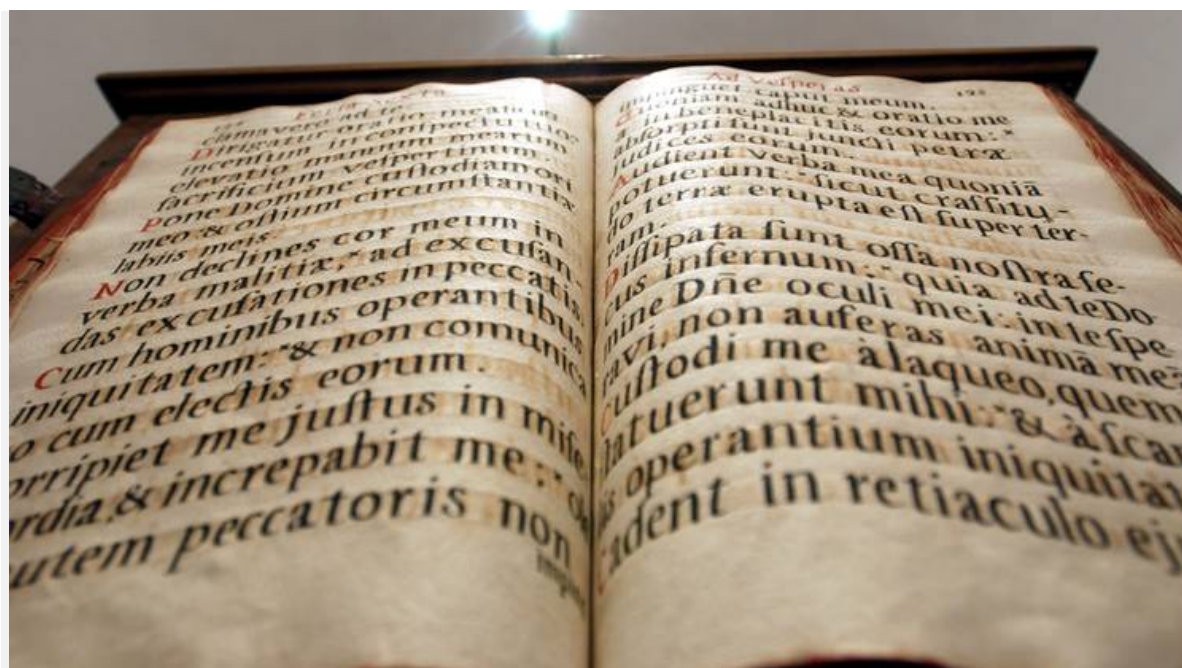 Feria Sexta
clamavero ad te.
Dirigatur oratio mea sicut
incensum in conspectu tuo:
elevatio manuum mearum
sacrificium vespertinum.
Pone Domine custodiam ori
meo: & ostium circumstantiæ
labiis meis.
Non declines cor meum in
verba malitiæ,* ad excusan-
das excusationes in peccatis.
Cum hominibus operantibus
iniquitatem:*& non comunica
o cum electis eorum.
orripiet me justus in mise
ordia, & increpabit me:*
utem peccatoris non
Ad Vesperas
impinguet caput meum.
Quoniam adhuc & oratio me
a in beneplacitis eorum:*
absorpti sunt juncti petræ
judices eorum.
Audient verba mea quoniã
potuerunt:*sicut crassitu-
do terræ erupta est super ter-
ram.
Dissipata sunt ossa nostra se-
cus infernum:*quia ad te Do
mine Dñe oculi mei: in te spe
ravi, non auferas animã meã
Custodi me à laqueo, quem
statuerunt mihi:*& à scan
is operantium iniquitat
Cadent in retiaculo ej